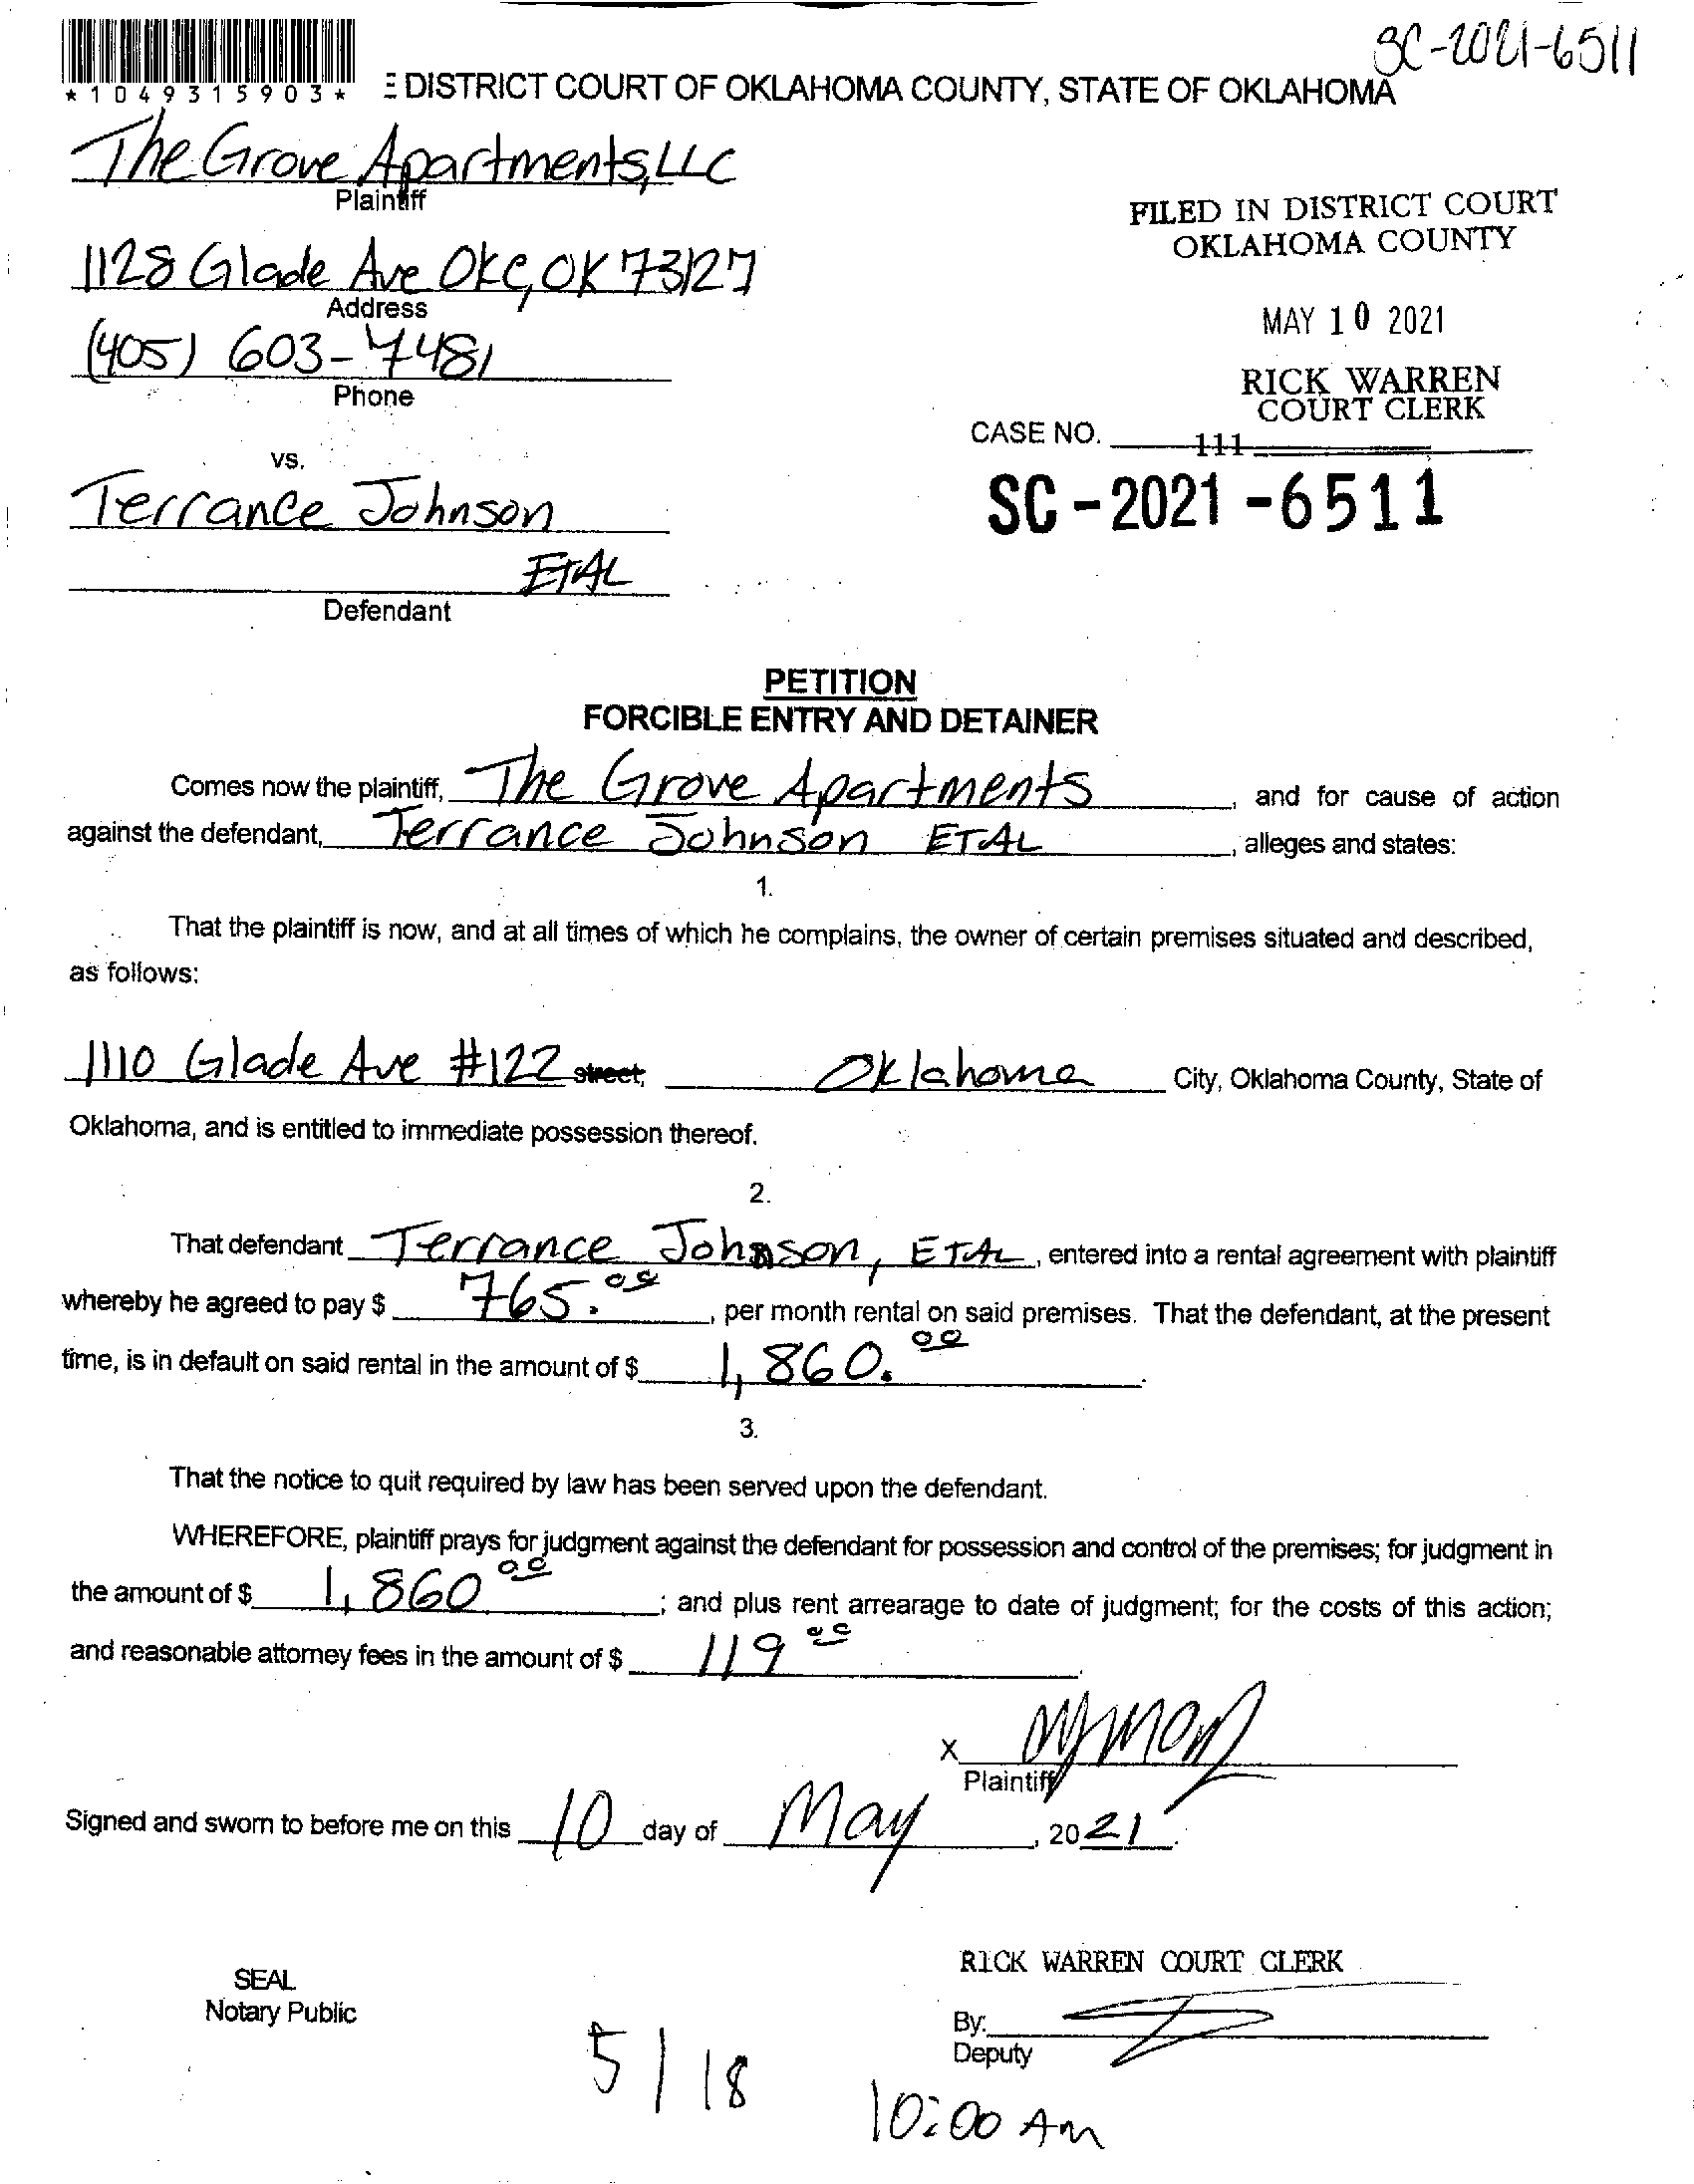 SC-2021-6511
*1049315903* E DISTRICT COURT OF OKLAHOMA COUNTY, STATE OF OKLAHOMA
The Grove Apartments, LLC
Plaintiff
FILED IN DISTRICT COURT
OKLAHOMA COUNTY
1128 Glade Ave OKC, OK 73127
Address
MAY 10 2021
(405) 603-7481
Phone
RICK WARREN
COURT CLERK
CASE NO. 111
vs.
Terrance Johnson
SC-2021-6511
ETAL
Defendant
PETITION
FORCIBLE ENTRY AND DETAINER
Comes now the plaintiff, The Grove Apartments, and for cause of action
against the defendant, Terrance Johnson ETAL, alleges and states:
1.
That the plaintiff is now, and at all times of which he complains, the owner of certain premises situated and described,
as follows:
1110 Glade Ave #122 street, Oklahoma City, Oklahoma County, State of
Oklahoma, and is entitled to immediate possession thereof.
2.
That defendant Terrance Johnson, ETAL, entered into a rental agreement with plaintiff
whereby he agreed to pay $ 765.00, per month rental on said premises. That the defendant, at the present
time, is in default on said rental in the amount of $ 1,860.00.
3.
That the notice to quit required by law has been served upon the defendant.
WHEREFORE, plaintiff prays for judgment against the defendant for possession and control of the premises; for judgment in
the amount of $ 1,860 00; and plus rent arrearage to date of judgment; for the costs of this action;
and reasonable attorney fees in the amount of $ 119 00.
X
Plaintiff
Signed and sworn to before me on this 10 day of May, 2021.
RICK WARREN COURT CLERK
SEAL
Notary Public
By:
Deputy
5/18
10:00 AM